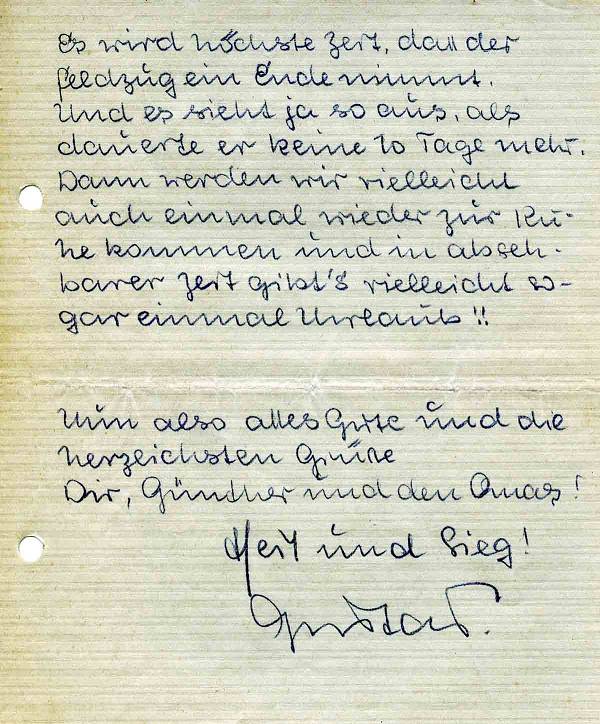 Es wird höchste Zeit, daß der
Feldzug ein Ende nimmt.
Und es sieht ja so aus, als
dauerte er keine 10 Tage mehr.
Dann werden wir vielleicht
auch einmal wieder zur Ru-
he kommen und in abseh-
barer Zeit gibt's vielleicht so-
gar einmal Urlaub!!
Nun also alles Gute und die
herzlichsten Grüße
Dir, Günther und den Omas!
Heil und Sieg!
Gustav.